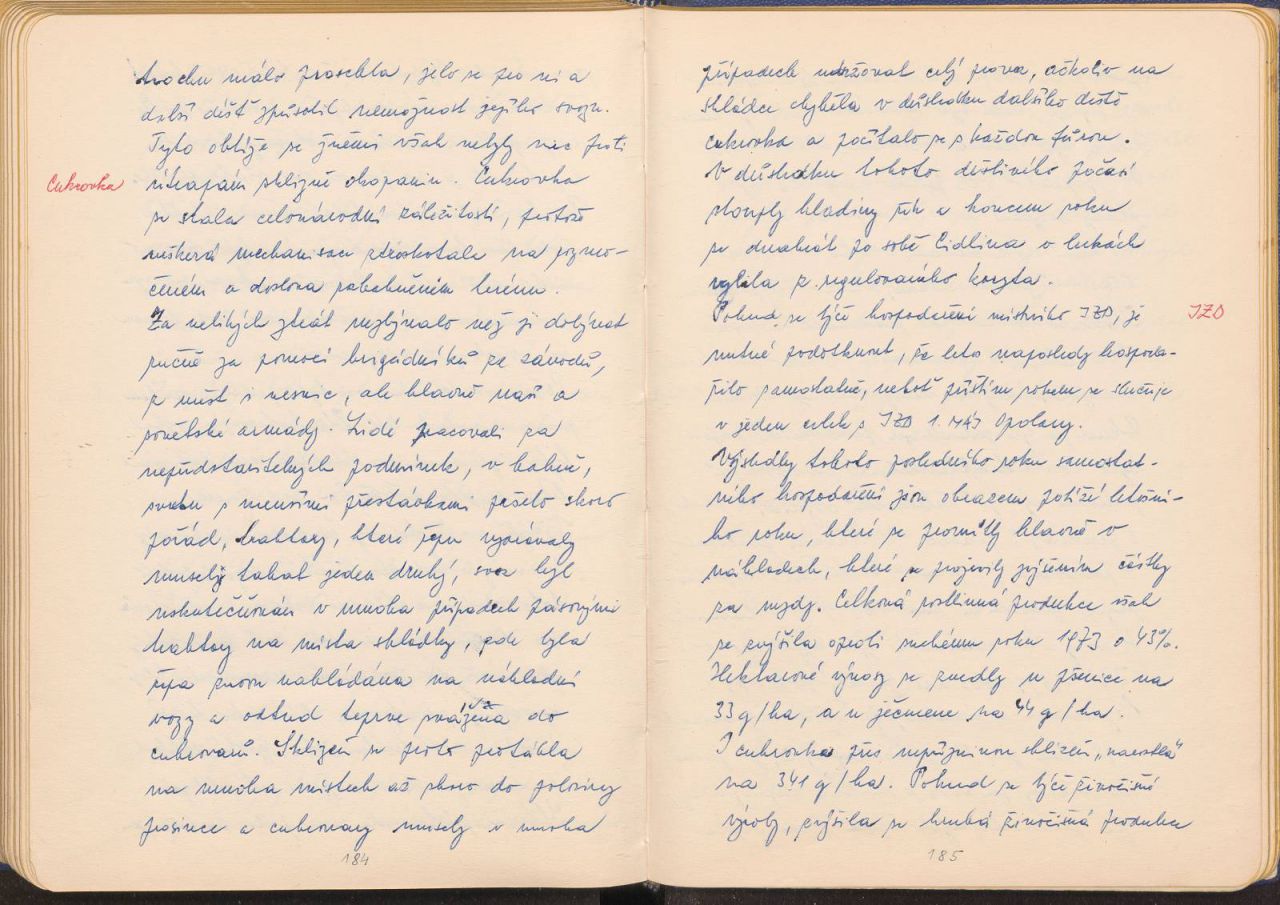 trochu málo proschla, jelo se pro ni a
další déšť způsobil nemožnost jejího svozu.
Tyto obtíže se žněmi však nebyly nic proti
Cukrovka
útrapám sklizně okopanin. Cukrovka
se stala celonárodní záležitostí, protože
veškerá mechanisace ztroskotala na rozmo-
čeném a doslova rozbahněném terénu.
Za velikých ztrát nezbývalo než ji dobývat
ručně za pomoci brigádníků ze závodů,
z měst i vesnic, ale hlavně naší a
sovětské armády. Lidé pracovali za
nepředstavitelných podmínek, v bahně,
s menšími přestávkami pršelo skoro
pořád, traktory, které řepu vyorávaly
musely tahat jeden druhý, svoz byl
uskutečňován v mnoha případech pásovými
traktory na místa skládky, kde byla
řepa znovu nakládána na nákladní
vozy a odtud teprve svážena do
cukrovarů. Sklizeň se proto protáhla
na mnoha místech až skoro do poloviny
prosince a cukrovary musely v mnoha
184
případech udržovat celý provoz, ačkoliv na
skládce chyběla v důsledku dalšího deště
cukrovka a počítalo se s každou fůrou.
V důsledku tohoto deštivého počasí
stouply hladiny řek a koncem roku
se dvakrát po sobě Cidlina v lukách
vylila z regulovaného koryta.
Pokud se týče hospodaření místního JZD, je
JZD
nutné podotknout, že letos naposledy hospoda-
řilo samostatně, neboť příštím rokem se slučuje
v jeden celek s JZD 1. máj Opolany.
Výsledky tohoto posledního roku samostat-
ného hospodaření jsou obrazem potíží letošní-
ho roku, které se promítly hlavně v
nákladech, které se projevily zvýšením částky
za mzdy. Celková rostlinná produkce však
se zvýšila oproti suchému roku 1973 o 43%.
Hektarové výnosy se zvedly u pšenice na
33 q/ha, a u ječmene na 44 q/ha.
I cukrovka přes nepříznivou sklizeň „narostla"
na 341 q/ha. Pokud se týče živočišné
výroby, zvýšila se hrubá živočišná produkce
185